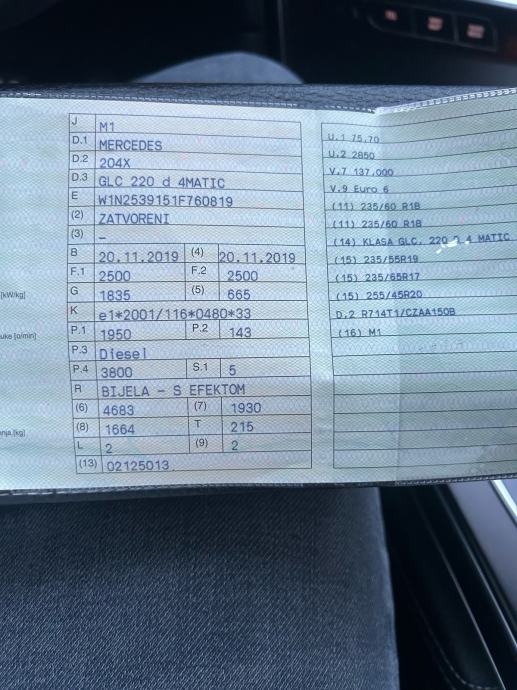 J M1
D.1 MERCEDES
D.2 204X
D.3 GLC 220 d 4MATIC
E W1N2539151F760819
(2) ZATVORENI
(3) –
B 20.11.2019 (4) 20.11.2019
F.1 2500 F.2 2500
G 1835 (5) 665
[kW/kg]
K e1*2001/116*0480*33
P.1 1950 P.2 143
uke [o/min]
P.3 Diesel
P.4 3800 S.1 5
R BIJELA – S EFEKTOM
(6) 4683 (7) 1930
(8) 1664 T 215
anja [kg]
L 2 (9) 2
(13) 02125013
U.1 75,70
U.2 2850
V.7 137,000
V.9 Euro 6
(11) 235/60 R18
(11) 235/60 R18
(14) KLASA GLC, 220 4 MATIC
(15) 235/55R19
(15) 235/65R17
(15) 255/45R20
D.2 R714T1/CZAA150B
(16) M1